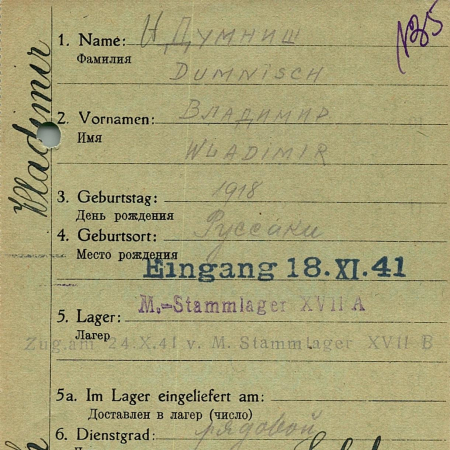 №35
1. Name: И Думниш
Фамилия
DUMNISCH
2. Vornamen: Владимир
Имя
WLADIMIR
Wladimir
3. Geburtstag: 1918
День рождения
4. Geburtsort: Руссаки
Место рождения
Eingang 18.XI.41
M.-Stammlager XVII A
5. Lager:
Лагер
Zug.am 24.X.41 v. M. Stammlager XVII B
5a. Im Lager eingeliefert am:
Доставлен в лагер (число)
6. Dienstgrad: рядовой